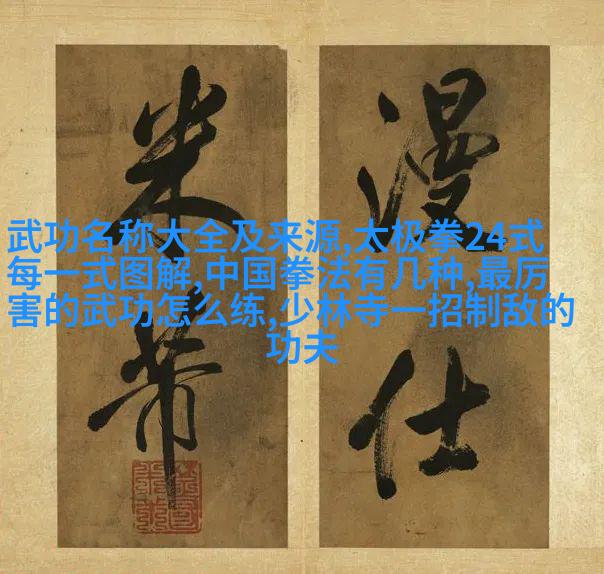 漫仕
米芾
武功名称大全及来源,太极拳24式
每一式图解,中国拳法有几种,最厉
害的武功怎么练,少林寺一招制敌的
功夫